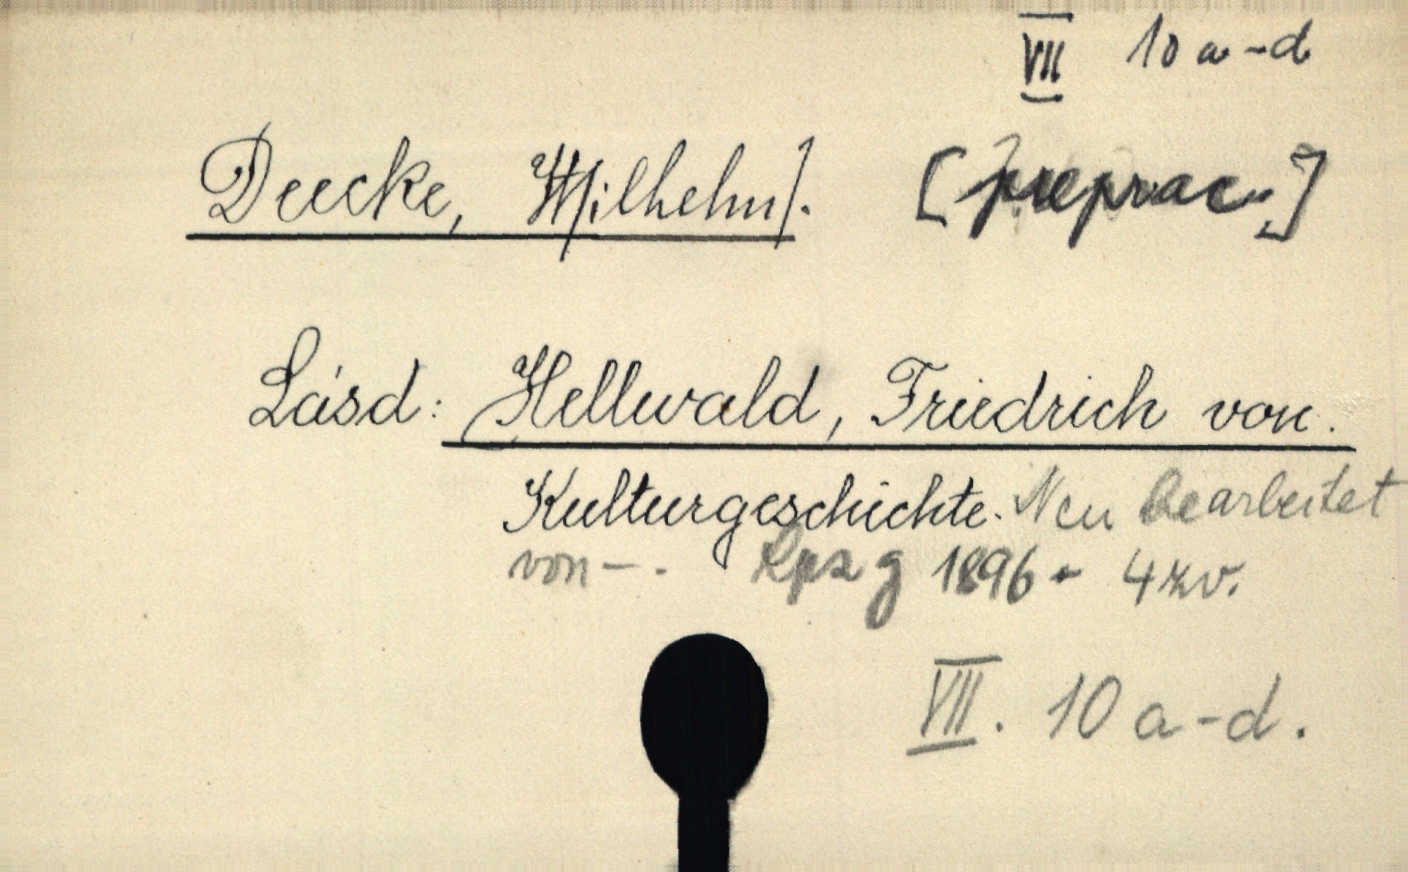 VII 10 a-d
Deecke, W[ilhelm]. [preprac.]
Lásd: Hellwald, Friedrich von.
Kulturgeschichte. Neu bearbeitet
von -. Lpzg 1896. 4 zv.
VII. 10 a-d.